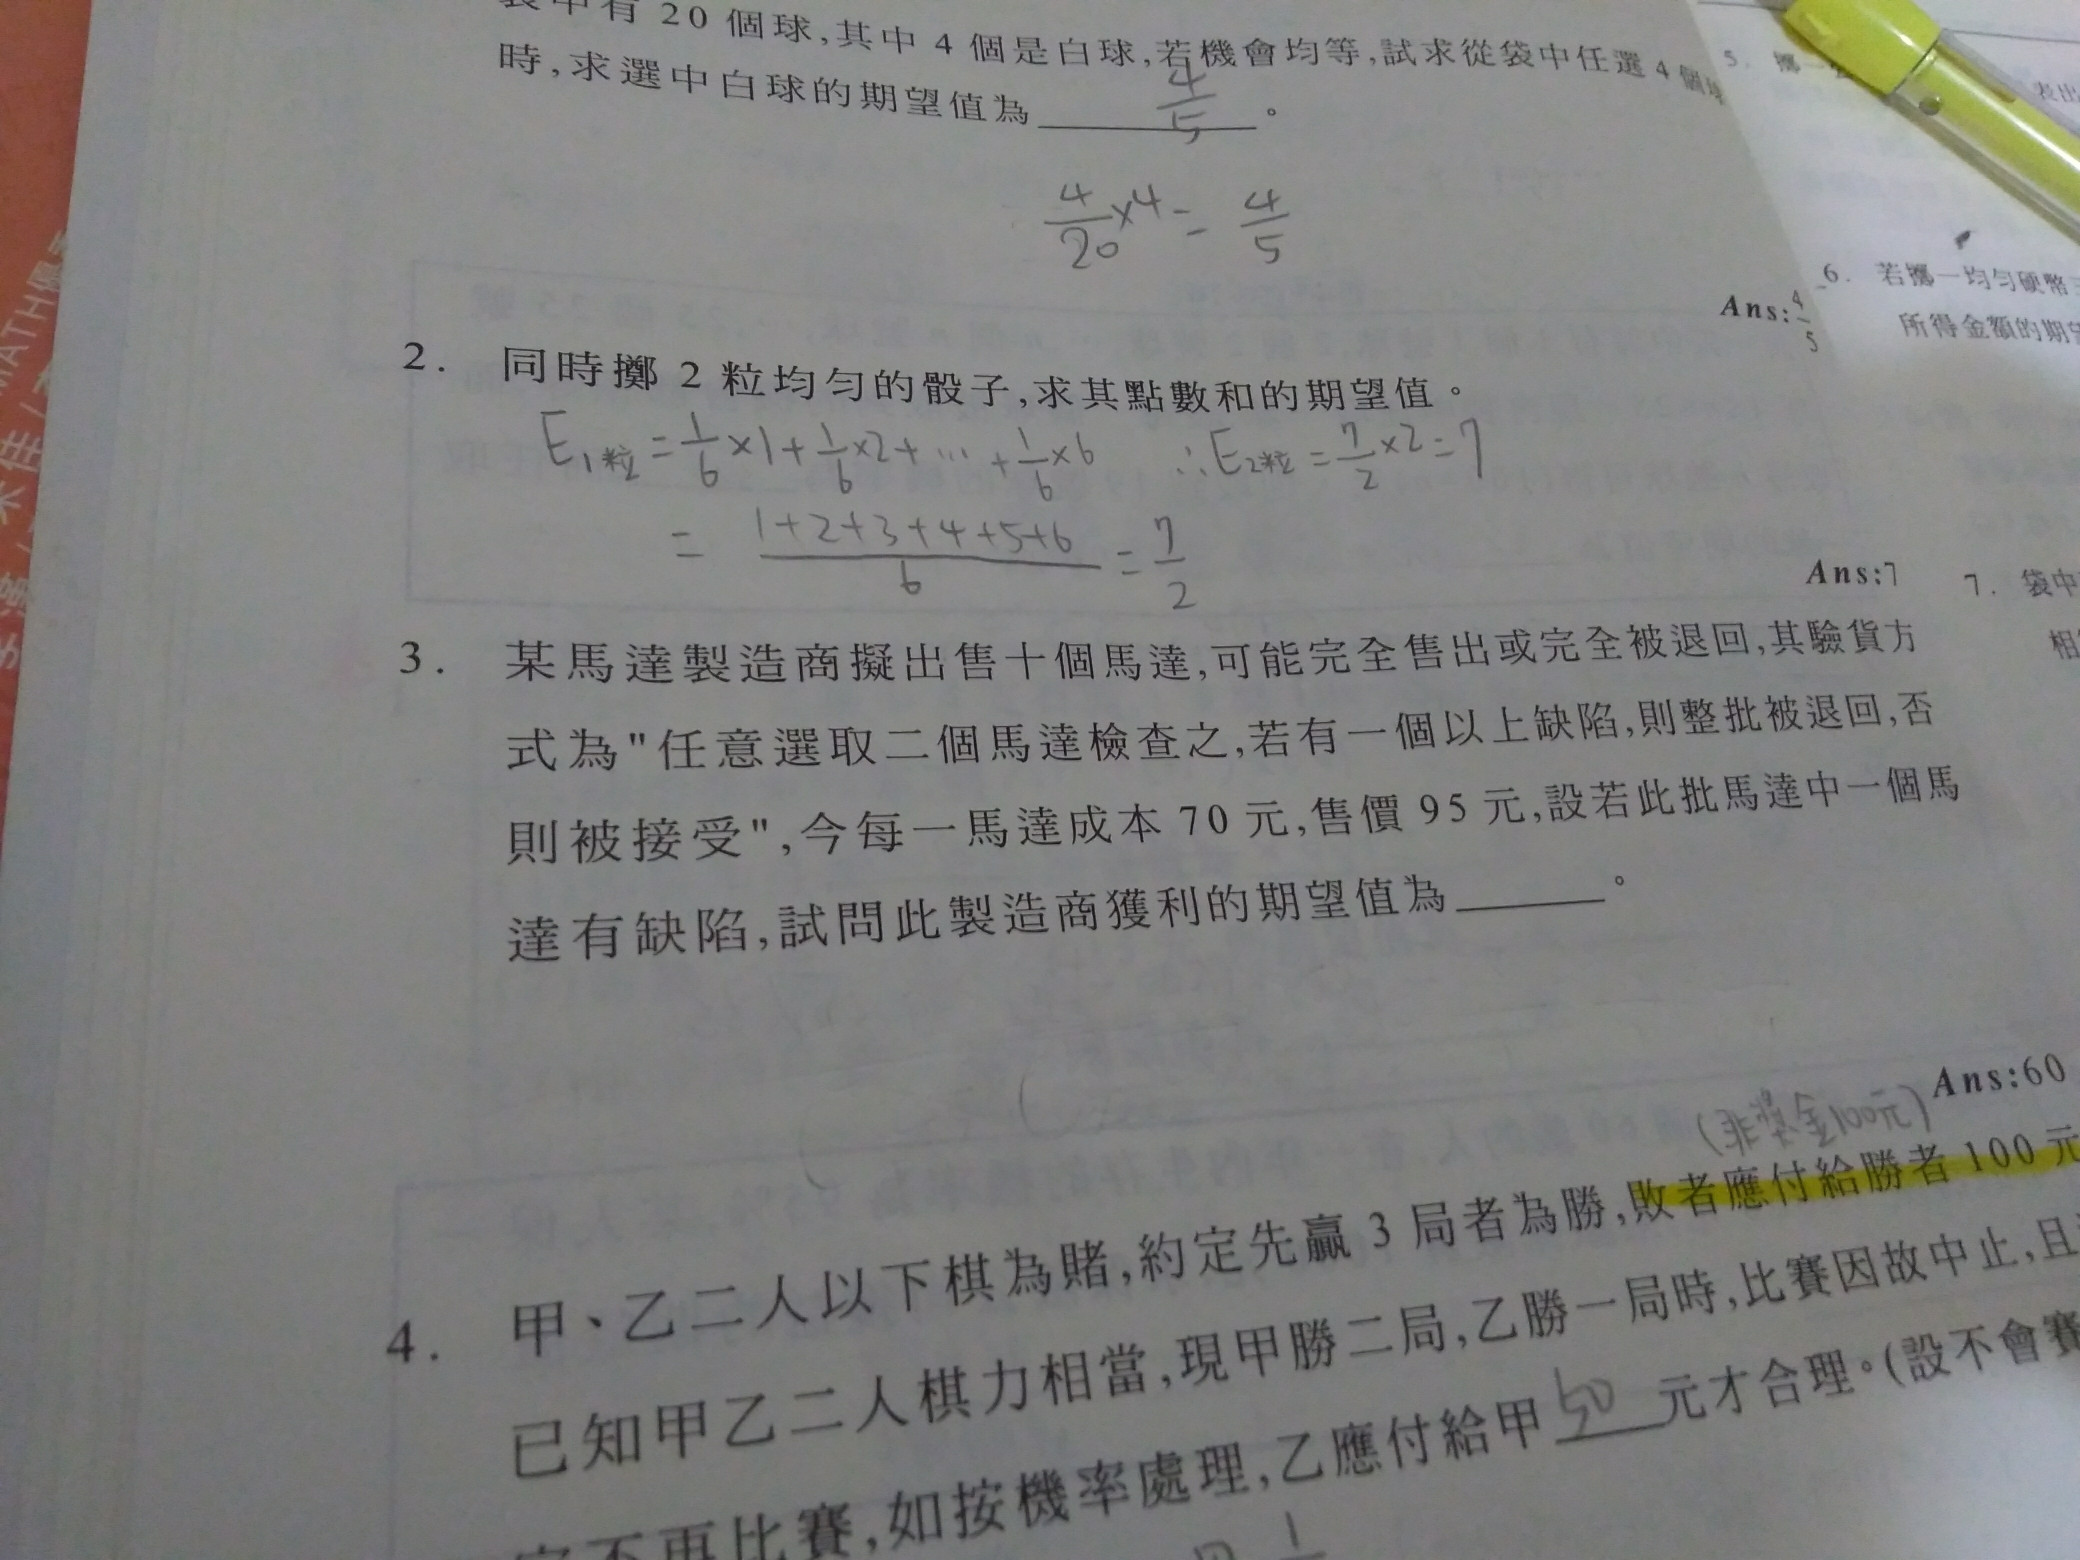 袋中有 20 個球,其中 4 個是白球,若機會均等,試求從袋中任選 4 個球
時,求選中白球的期望值為 4/5 。
4/20 ×4 = 4/5
Ans: 4/5
2. 同時擲 2 粒均勻的骰子,求其點數和的期望值。
E1粒 = 1/6 ×1 + 1/6 ×2 + … + 1/6 ×6 ∴E2粒 = 7/2 ×2 = 7
= 1+2+3+4+5+6 / 6 = 7/2
Ans:7
3. 某馬達製造商擬出售十個馬達,可能完全售出或完全被退回,其驗貨方
式為"任意選取二個馬達檢查之,若有一個以上缺陷,則整批被退回,否
則被接受",今每一馬達成本 70 元,售價 95 元,設若此批馬達中一個馬
達有缺陷,試問此製造商獲利的期望值為 。
Ans:60
(非獎金100元)
4. 甲、乙二人以下棋為賭,約定先贏 3 局者為勝,敗者應付給勝者 100 元
已知甲乙二人棋力相當,現甲勝二局,乙勝一局時,比賽因故中止,且
不再比賽,如按機率處理,乙應付給甲 50 元才合理。(設不會賽
5. 擲一
表出
6. 若擲一均勻硬幣
所得金額的期望
7. 袋中
相
MATH